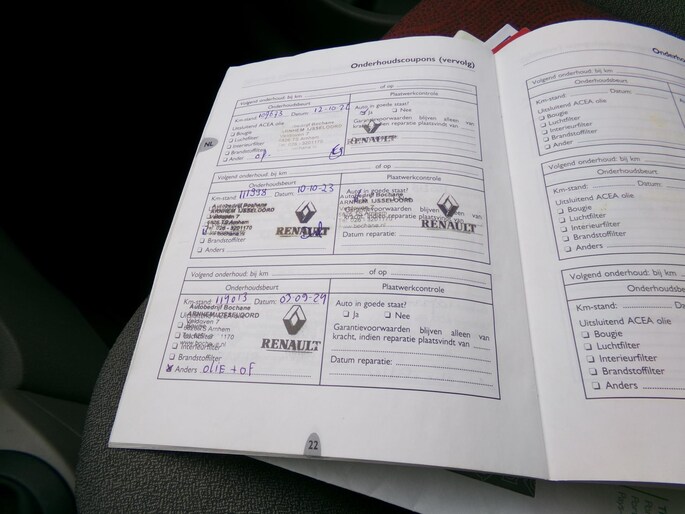 Onderhoudscoupons (vervolg)
Volgend onderhoud: bij km ............ of op ............
Onderhoudsbeurt Plaatwerkcontrole
Km-stand: 109673 Datum: 12-10-22
Auto in goede staat?
Ja ❑ Nee
Uitsluitend ACEA olie
❑ Bougie
❑ Luchtfilter
❑ Interieurfilter
❑ Brandstoffilter
❑ Anders
Garantievoorwaarden blijven alleen van
kracht, indien reparatie plaatsvindt van
RENAULT
NL
Volgend onderhoud: bij km ............ of op ............
Onderhoudsbeurt Plaatwerkcontrole
Km-stand: 111998 Datum: 10-10-23
Auto in goede staat?
Autobedrijf Bochane
ARNHEM IJSSELOORD
Veldoven 7
RENAULT
❑ Brandstoffilter
❑ Anders ............
Autobedrijf Bochane
ARNHEM IJSSELOORD
Garantievoorwaarden blijven alleen van
kracht, indien reparatie plaatsvindt van
RENAULT
Datum reparatie: ............
Volgend onderhoud: bij km ............ of op ............
Onderhoudsbeurt Plaatwerkcontrole
Km-stand: 119013 Datum: 03-09-24
Autobedrijf Bochane
ARNHEM IJSSELOORD
Veldoven 7
Arnhem
RENAULT
❑ Interieurfilter
❑ Brandstoffilter
Anders OLIE + OF
Auto in goede staat?
❑ Ja ❑ Nee
Garantievoorwaarden blijven alleen van
kracht, indien reparatie plaatsvindt van ............
Datum reparatie: ............
22
Volgend onderhoud: bij km ............
Onderhoudsbeurt
Km-stand: ............ Datum: ............
Uitsluitend ACEA olie
❑ Bougie
❑ Luchtfilter
❑ Interieurfilter
❑ Brandstoffilter
❑ Anders ............
Volgend onderhoud: bij km ............
Onderhoudsbeurt
Km-stand: ............ Datum: ............
Uitsluitend ACEA olie
❑ Bougie
❑ Luchtfilter
❑ Interieurfilter
❑ Brandstoffilter
❑ Anders ............
Volgend onderhoud: bij km ............
Km-stand: ............ Datum: ............
Uitsluitend ACEA olie
❑ Bougie
❑ Luchtfilter
❑ Interieurfilter
❑ Brandstoffilter
❑ Anders ............